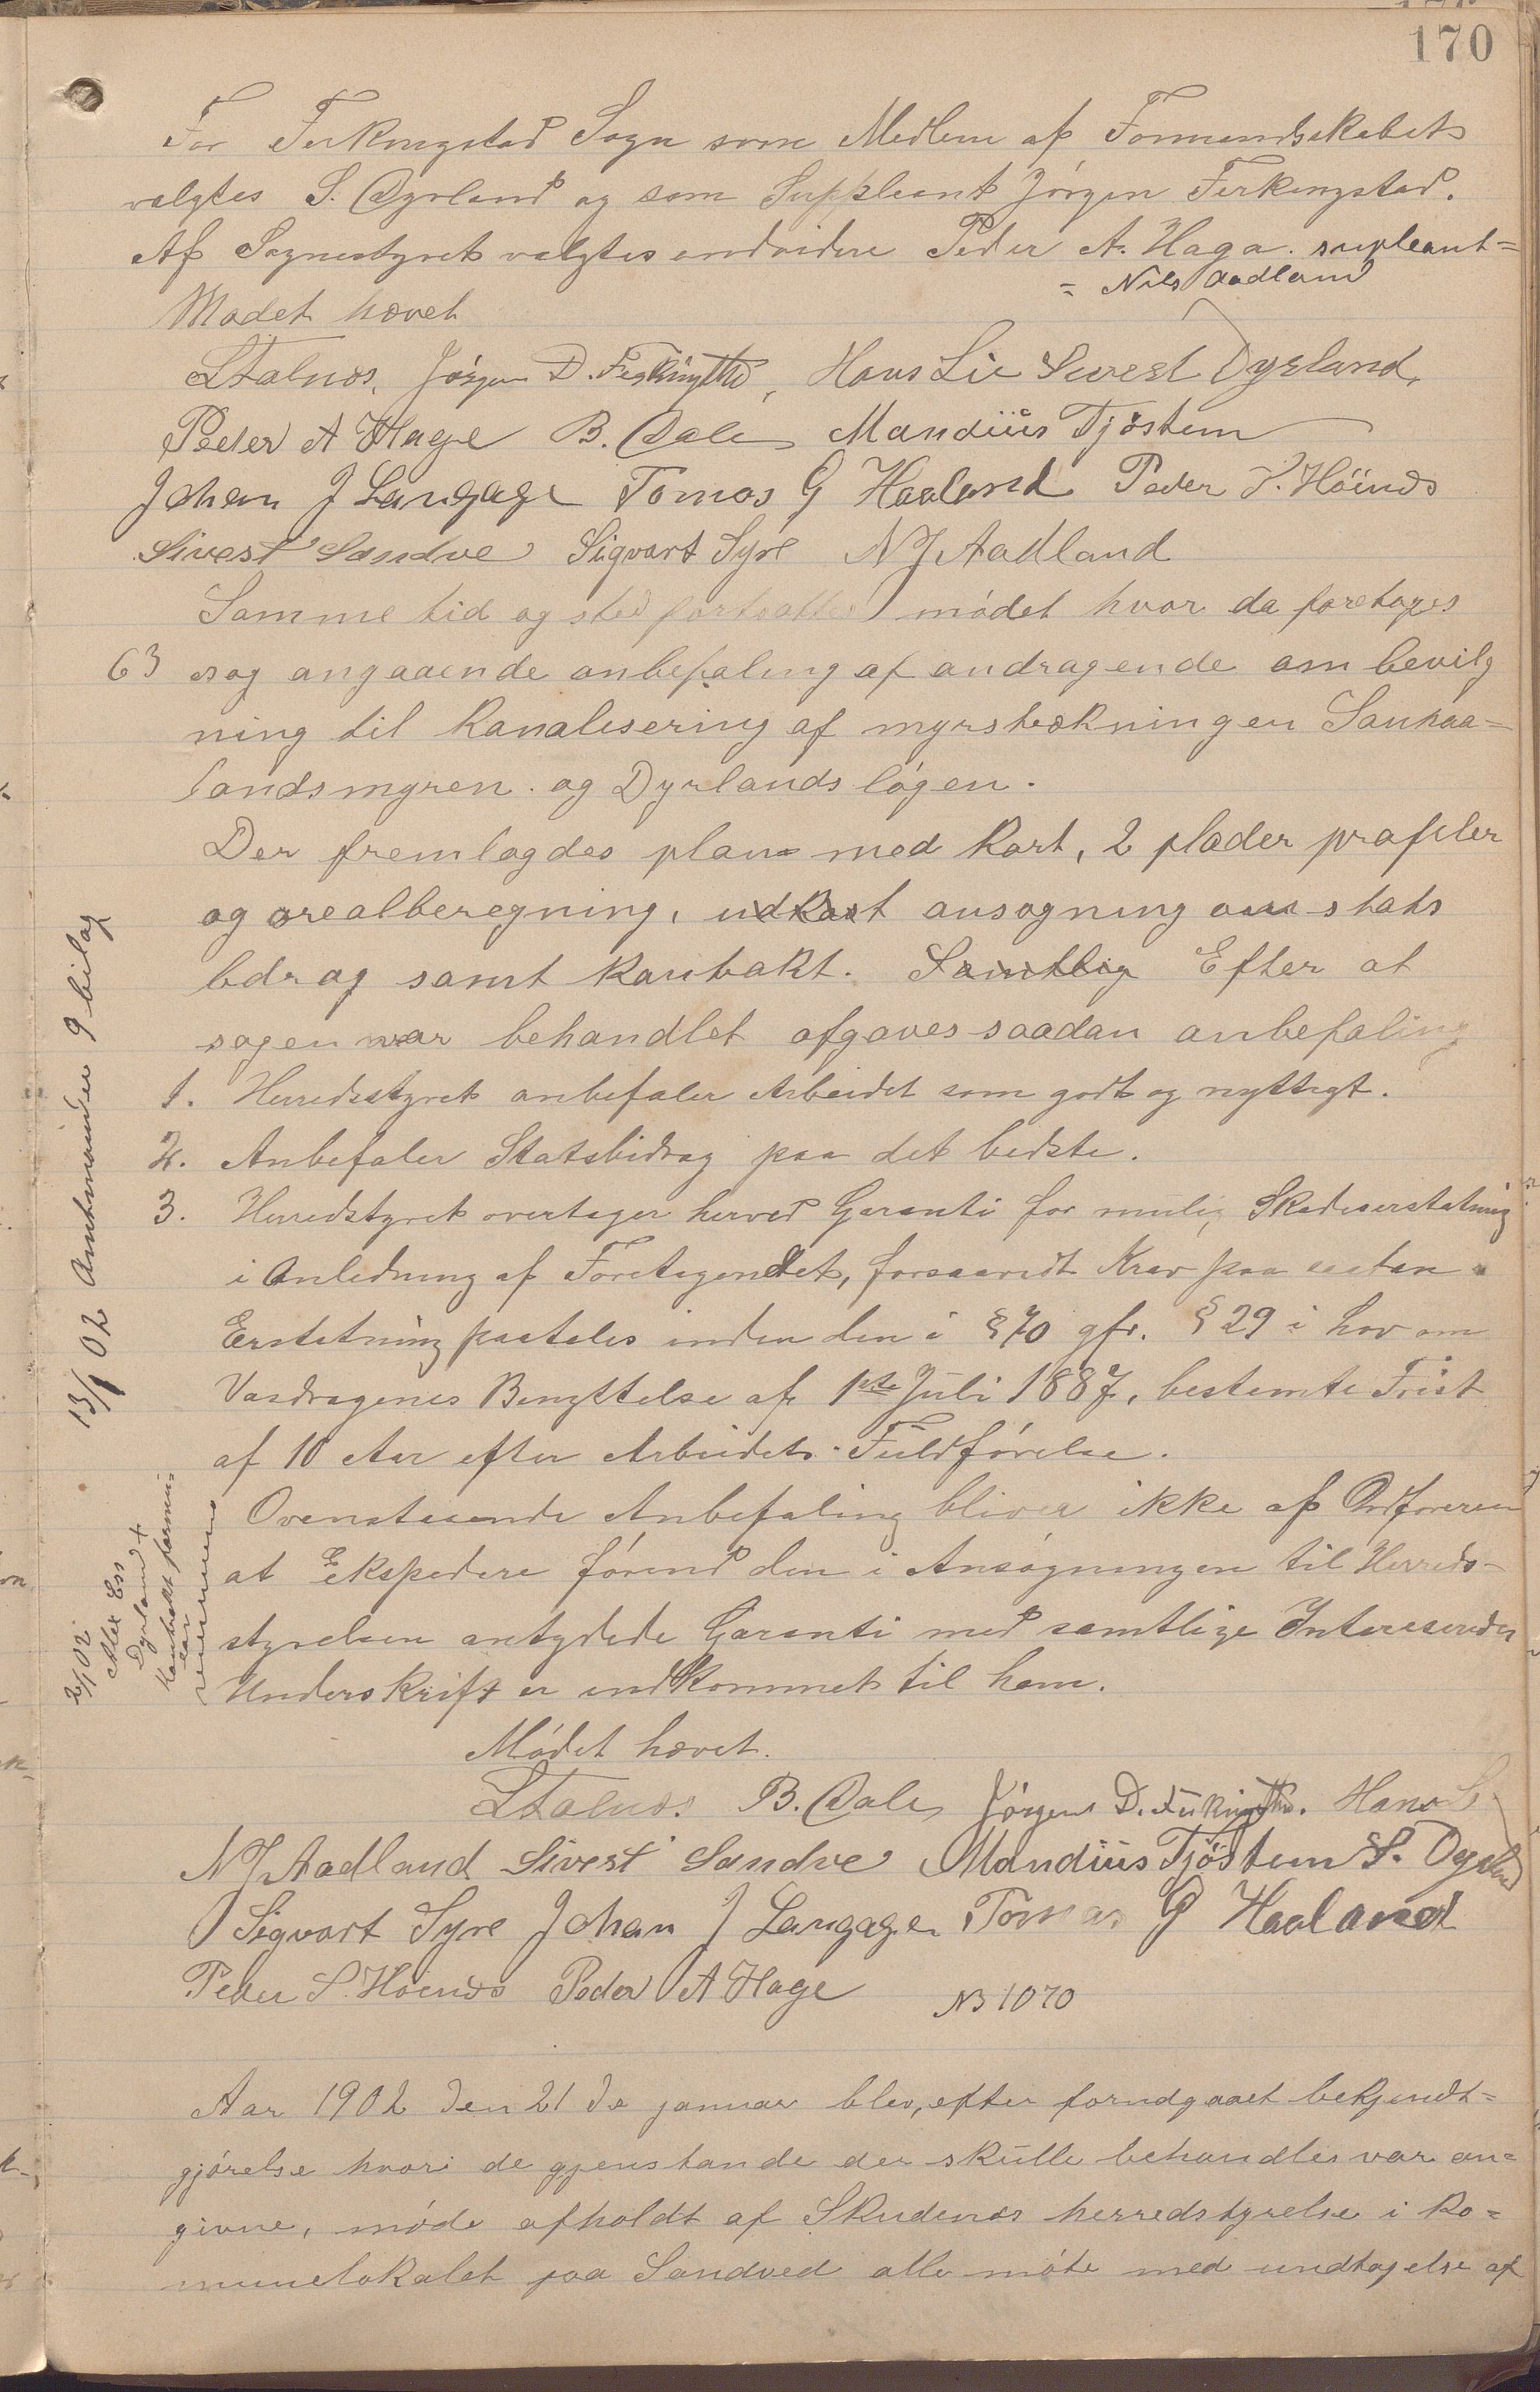 170
For Ferkingstad Sogn som Medlem af Formandskabet
valgtes S. Dyrland og som Suppleant Jörgen Ferkingstad.
Af Sognestyret valgtes endvidere Peder A. Haga. supleant=
= Nils Aadland
Mødet hævet
Stalnæs, Jörgen D. Ferkingstad, Hans Lie Sivert Dyrland,
Peder A Hage B. Dale Mandius Tjöstem
Johan J Langåge Tomas G Haaland Peder S. Höinæs
Sivert Sandve Sigvart Syre N J Aadland
Samme tid og sted fortsattes mödet hvor da foretoges
63 sag angaaende anbefaling af andragende om bevilg
ning til kanalisering af myrstrækningen Sanhaa=
landsmyren og Dyrlandslögen.
Der fremlagdes plan med kart, 2 plader profiler
og arealberegning, udkast ansøgning om stats
bdrag samt kontrakt. Samtlig Efter at
sagen var behandlet afgaves saadan anbefaling
1. Herredsstyret anbefaler Arbeidet som godt og nyttigt.
2. Anbefaler Statsbidrag paa det bedste.
3. Herredstyret overtager herved Garanti for mulig Skadeserstatning
i Anledning af Foretagendet, forsaavidt Krav paa saadan
Erstatning paatales inden den i § 70 gfr. § 29 i Lov om
Vasdragenes Benyttelse af 1ste Juli 1887, bestemte Frist
af 10 Aar efter Arbeidets Fuldförelse.
Ovenstaaende Anbefaling bliver ikke af Ordføreren
at Ekspedere förend den i Ansögningen til Herreds-
styrelsen antydede Garanti med samtlige Interesseredes
Underskrift er indkommet til ham.
Mödet hævet.
Stalnæs. B. Dale Jörgen D. Ferkingstad. Hans L
N J Aadland Sivert Sandve Mandius Tjöstem S. Dyrland
Sigvart Syre Johan J Langåge Tomas G Haaland
Peder S. Höinæs Peder A Hage NB 1070
Aar 1902 den 21de januar blev, efter forudgaaet bekjendt=
gjörelse hvori de gjenstande der skulle behandles var an=
givne, möde afholdt af Skudenæs herredstyrelse i ko=
munelokalet paa Sandved alle möte med undtagelse af
13/1 02 Amtmanden 9 bilag
2/ 02.
Dyrland +
kontrakt